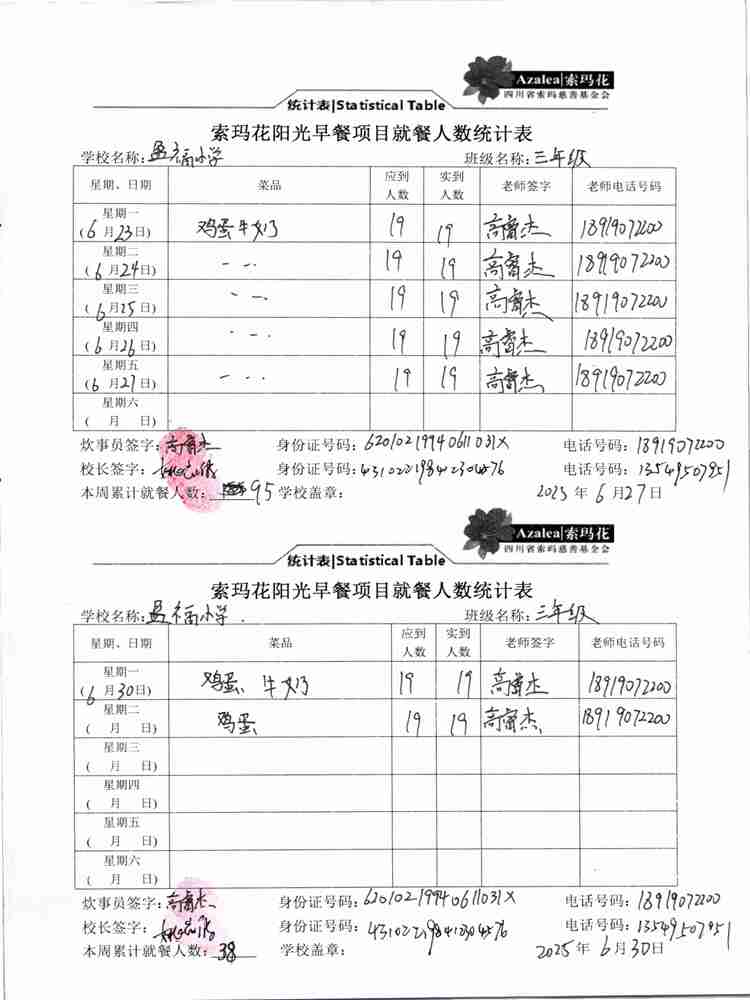 Azalea|索玛花
四川省索玛慈善基金会
统计表|Statistical Table
索玛花阳光早餐项目就餐人数统计表
学校名称:盈福小学 班级名称:三年级
星期、日期 菜品 应到人数 实到人数 老师签字 老师电话号码
星期一 (6月23日) 鸡蛋牛奶 19 19 18919072200
星期二 (6月24日) 19 19 18919072200
星期三 (6月25日) 19 19 18919072200
星期四 (6月26日) 19 19 18919072200
星期五 (6月27日) 19 19 18919072200
星期六 (月 日)
炊事员签字: 身份证号码:62010219940611031X 电话号码:18919072200
校长签字: 身份证号码: 电话号码:13549507951
本周累计就餐人数:95 学校盖章: 2025年6月27日
Azalea|索玛花
四川省索玛慈善基金会
统计表|Statistical Table
索玛花阳光早餐项目就餐人数统计表
学校名称:盈福小学. 班级名称:三年级
星期、日期 菜品 应到人数 实到人数 老师签字 老师电话号码
星期一 (6月30日) 鸡蛋 牛奶 19 19 18919072200
星期二 (月 日) 鸡蛋 19 19 18919072200
星期三 (月 日)
星期四 (月 日)
星期五 (月 日)
星期六 (月 日)
炊事员签字: 身份证号码:62010219940611031X 电话号码:18919072200
校长签字: 身份证号码: 电话号码:13549507951
本周累计就餐人数:38 学校盖章: 2025年6月30日